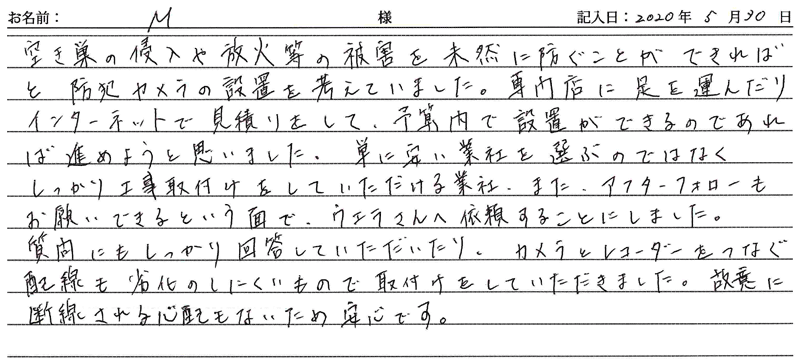 お名前： M 様 記入日：2020年 5月30日
空き巣の侵入や放火等の被害を未然に防ぐことができれば
と防犯カメラの設置を考えていました。専門店に足を運んだり
インターネットで見積りをして、予算内で設置ができるのであれ
ば進めようと思いました。単に安い業社を選ぶのではなく
しっかり工事取付けをしていただける業社、また、アフターフォローも
お願いできるという面で、ウエラさんへ依頼することにしました。
質問にもしっかり回答していただいたり、カメラとレコーダーをつなぐ
配線も劣化のしにくいもので取付けをしていただきました。故意に
断線される心配もないため安心です。